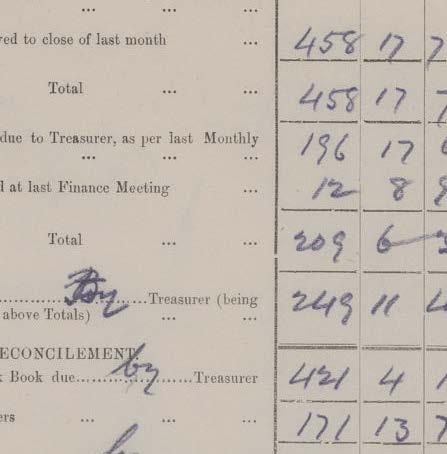 ... ... ...
ved to close of last month ... 458 17 7
Total ... ... 458 17 7
due to Treasurer, as per last Monthly
... ... ... 196 17 6
d at last Finance Meeting ... 12 8 9
Total ... ... 209 6 3
by Treasurer (being
above Totals) ... ... 249 11 4
ECONCILEMENT.
k Book due by Treasurer 421 4 1
ers ... ... ... 171 13 7